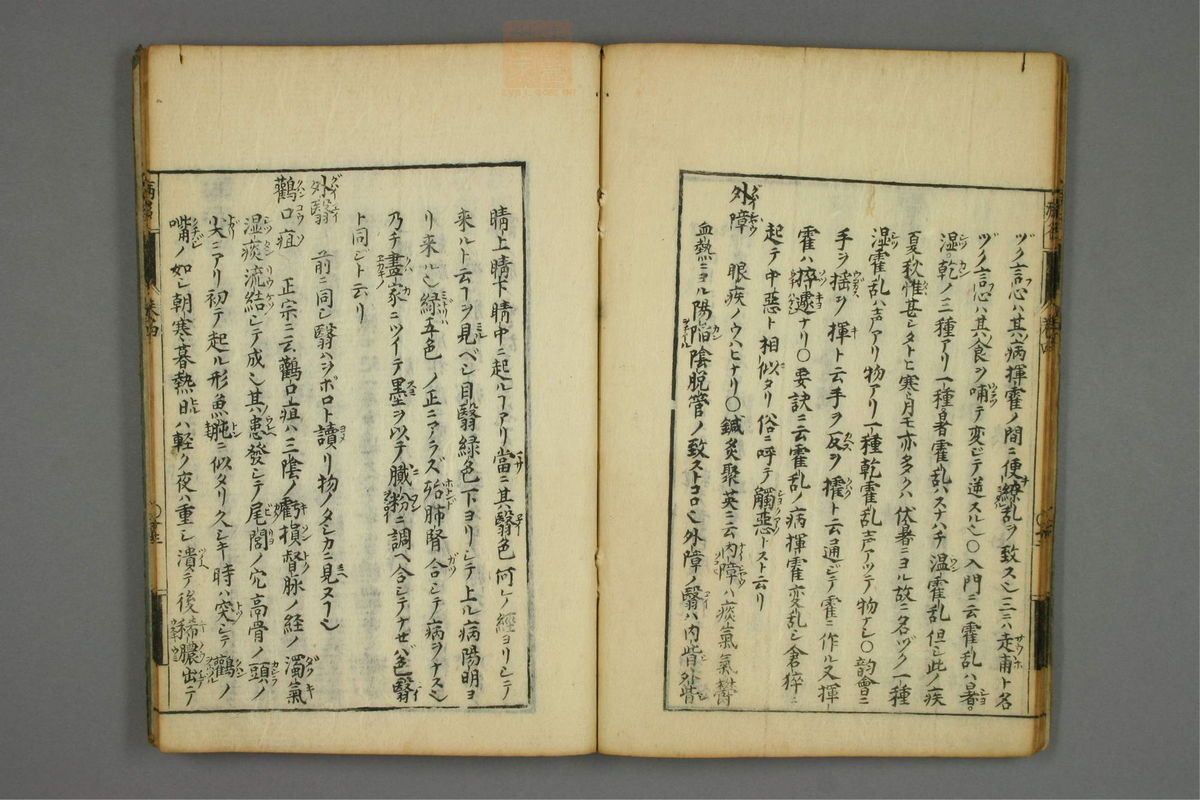 ヅク言心ハ其病揮霍ノ間ニ便繚乱ヲ致ス也三ニハ走甫ト名
ヅク言心ハ其食ヲ哺テ変ジテ逆スル也〇入門ニ云霍乱ハ暑
湿乾ノ三種アリ一種暑霍乱ハスナハチ温霍乱但シ此ノ疾
夏秋惟甚シタトヒ寒月モ亦多クハ伏暑ニヨル故ニ名ヅク一種
湿霍乱ハ声アリ物アリ一種乾霍乱声アツテ物ナシ〇韵會ニ
手ヲ揺ヲ揮ト云手ヲ反ヲ攉ト云通ジテ霍ニ作ル又揮
霍ハ猝遽ナリ〇要訣ニ云霍乱ノ病揮霍変乱シ倉猝ニ
起テ中悪ト相似タリ俗ニ呼テ觸悪トス云リ
外障 眼疾ノウハヒナリ〇鍼灸聚英ニ云内障ハ痰氣氣欝
血熱ニヨル陽陷陰脱管ノ致ストコロ也外障ノ翳ハ内眥外眥
睛上睛下睛中ニ起ルヿアリ當ニ其翳色何レノ經ヨリシテ
来ルト云ヿヲ見ベシ目翳緑色下ヨリシテ上ル病陽明ヨ
リ来ル也緑五色ノ正ニアラズ殆肺腎合シテ病ヲナス也
乃チ畫家ニツイテ墨ヲ以テ膩粉ニ調ヘ合シテナセバ色翳
ト同ジト云リ
外翳 前ニ同シ翳ハヲボロト讀リ物ノタシカニ見ヘヌ也
鸛口疽 正宗ニ云鸛口疽ハ三陰ノ虧損督脉ノ経ノ濁氣
湿痰流結シテ成也其患發シテ尾閭ノ穴高骨ノ頭ノ
尖ニアリ初テ起ル形魚肫ニ似タリ久シキ時ハ突シテ鸛ノ
嘴ノ如シ朝寒暮熱日ハ軽ク夜ハ重シ潰テ後稀膿出テ